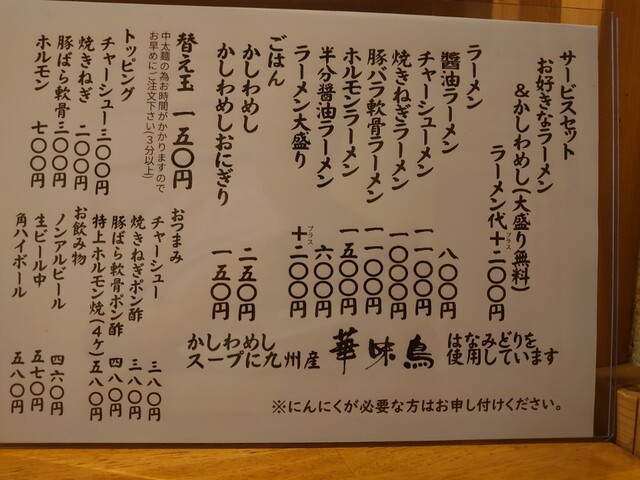 サービスセット
お好きなラーメン
&かしわめし(大盛り無料)
ラーメン代+二〇〇円
プラス
ラーメン
醬油ラーメン 八〇〇円
チャーシューメン 一一〇〇円
焼きねぎラーメン 一〇〇〇円
豚バラ軟骨ラーメン 一一〇〇円
ホルモンラーメン 一五〇〇円
半分醤油ラーメン 六〇〇円
ラーメン大盛り +二〇〇円
プラス
ごはん
かしわめし 二五〇円
かしわめしおにぎり 一五〇円
替え玉 一五〇円
中太麺の為お時間がかかりますので
お早めにご注文下さい(3分以上)
トッピング
チャーシュー 三〇〇円
焼きねぎ 二〇〇円
豚ばら軟骨 三〇〇円
ホルモン 七〇〇円
おつまみ
チャーシュー 三八〇円
焼きねぎポン酢 三八〇円
豚ばら軟骨ポン酢 四八〇円
特上ホルモン焼(4ケ) 五八〇円
お飲み物
ノンアルビール 四六〇円
生ビール中 五七〇円
角ハイボール 五八〇円
かしわめし
スープに九州産
華味鳥
はなみどりを
使用しています
※にんにくが必要な方はお申し付けください。